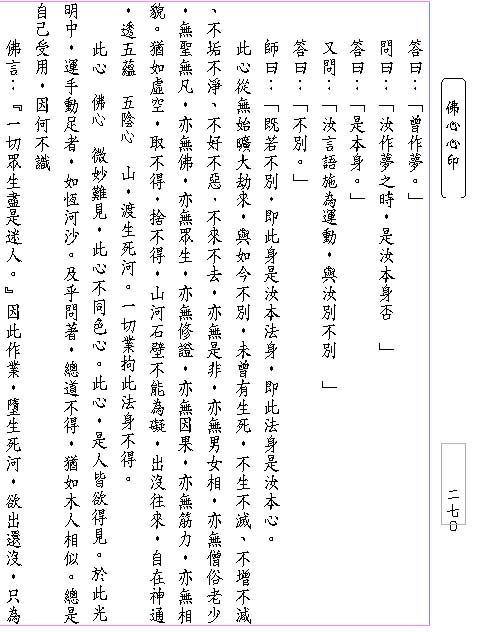 佛心心印
二七〇
答曰：「曾作夢。」
問曰：「汝作夢之時，是汝本身否　」
答曰：「是本身。」
又問：「汝言語施為運動，與汝別不別　」
答曰：「不別。」
師曰：「既若不別，即此身是汝本法身，即此法身是汝本心。
此心從無始曠大劫來，與如今不別，未曾有生死，不生不滅、不增不減
、不垢不淨、不好不惡、不來不去，亦無是非，亦無男女相，亦無僧俗老少
，無聖無凡，亦無佛，亦無眾生，亦無修證，亦無因果，亦無筋力，亦無相
貌。猶如虛空，取不得，捨不得，山河石壁不能為礙，出沒往來，自在神通
，透五蘊　五陰心　山，渡生死河。一切業拘此法身不得。
此心　佛心　微妙難見，此心不同色心。此心，是人皆欲得見。於此光
明中，運手動足者，如恆河沙。及乎問著，總道不得，猶如木人相似。總是
自己受用，因何不識
佛言：『一切眾生盡是迷人。』因此作業，墮生死河，欲出還沒，只為